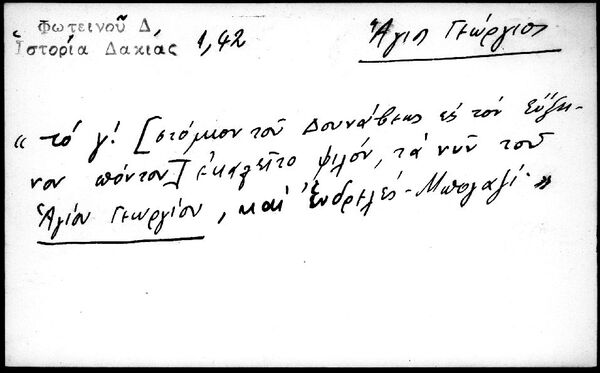 Φωτεινοῦ Δ,
Ἱστορία Δακιας 1,42
Ἅγιος Γεώργιος
« τό γ! [στόμιον τοῦ Δουνάβεως εἰς τόν Εὔξει-
νον πόντον] ἐκαλεῖτο ψιλόν, τά νῦν τοῦ
Ἁγίου Γεωργίου, καί Ἐνδρελές-Μπογαζί. »